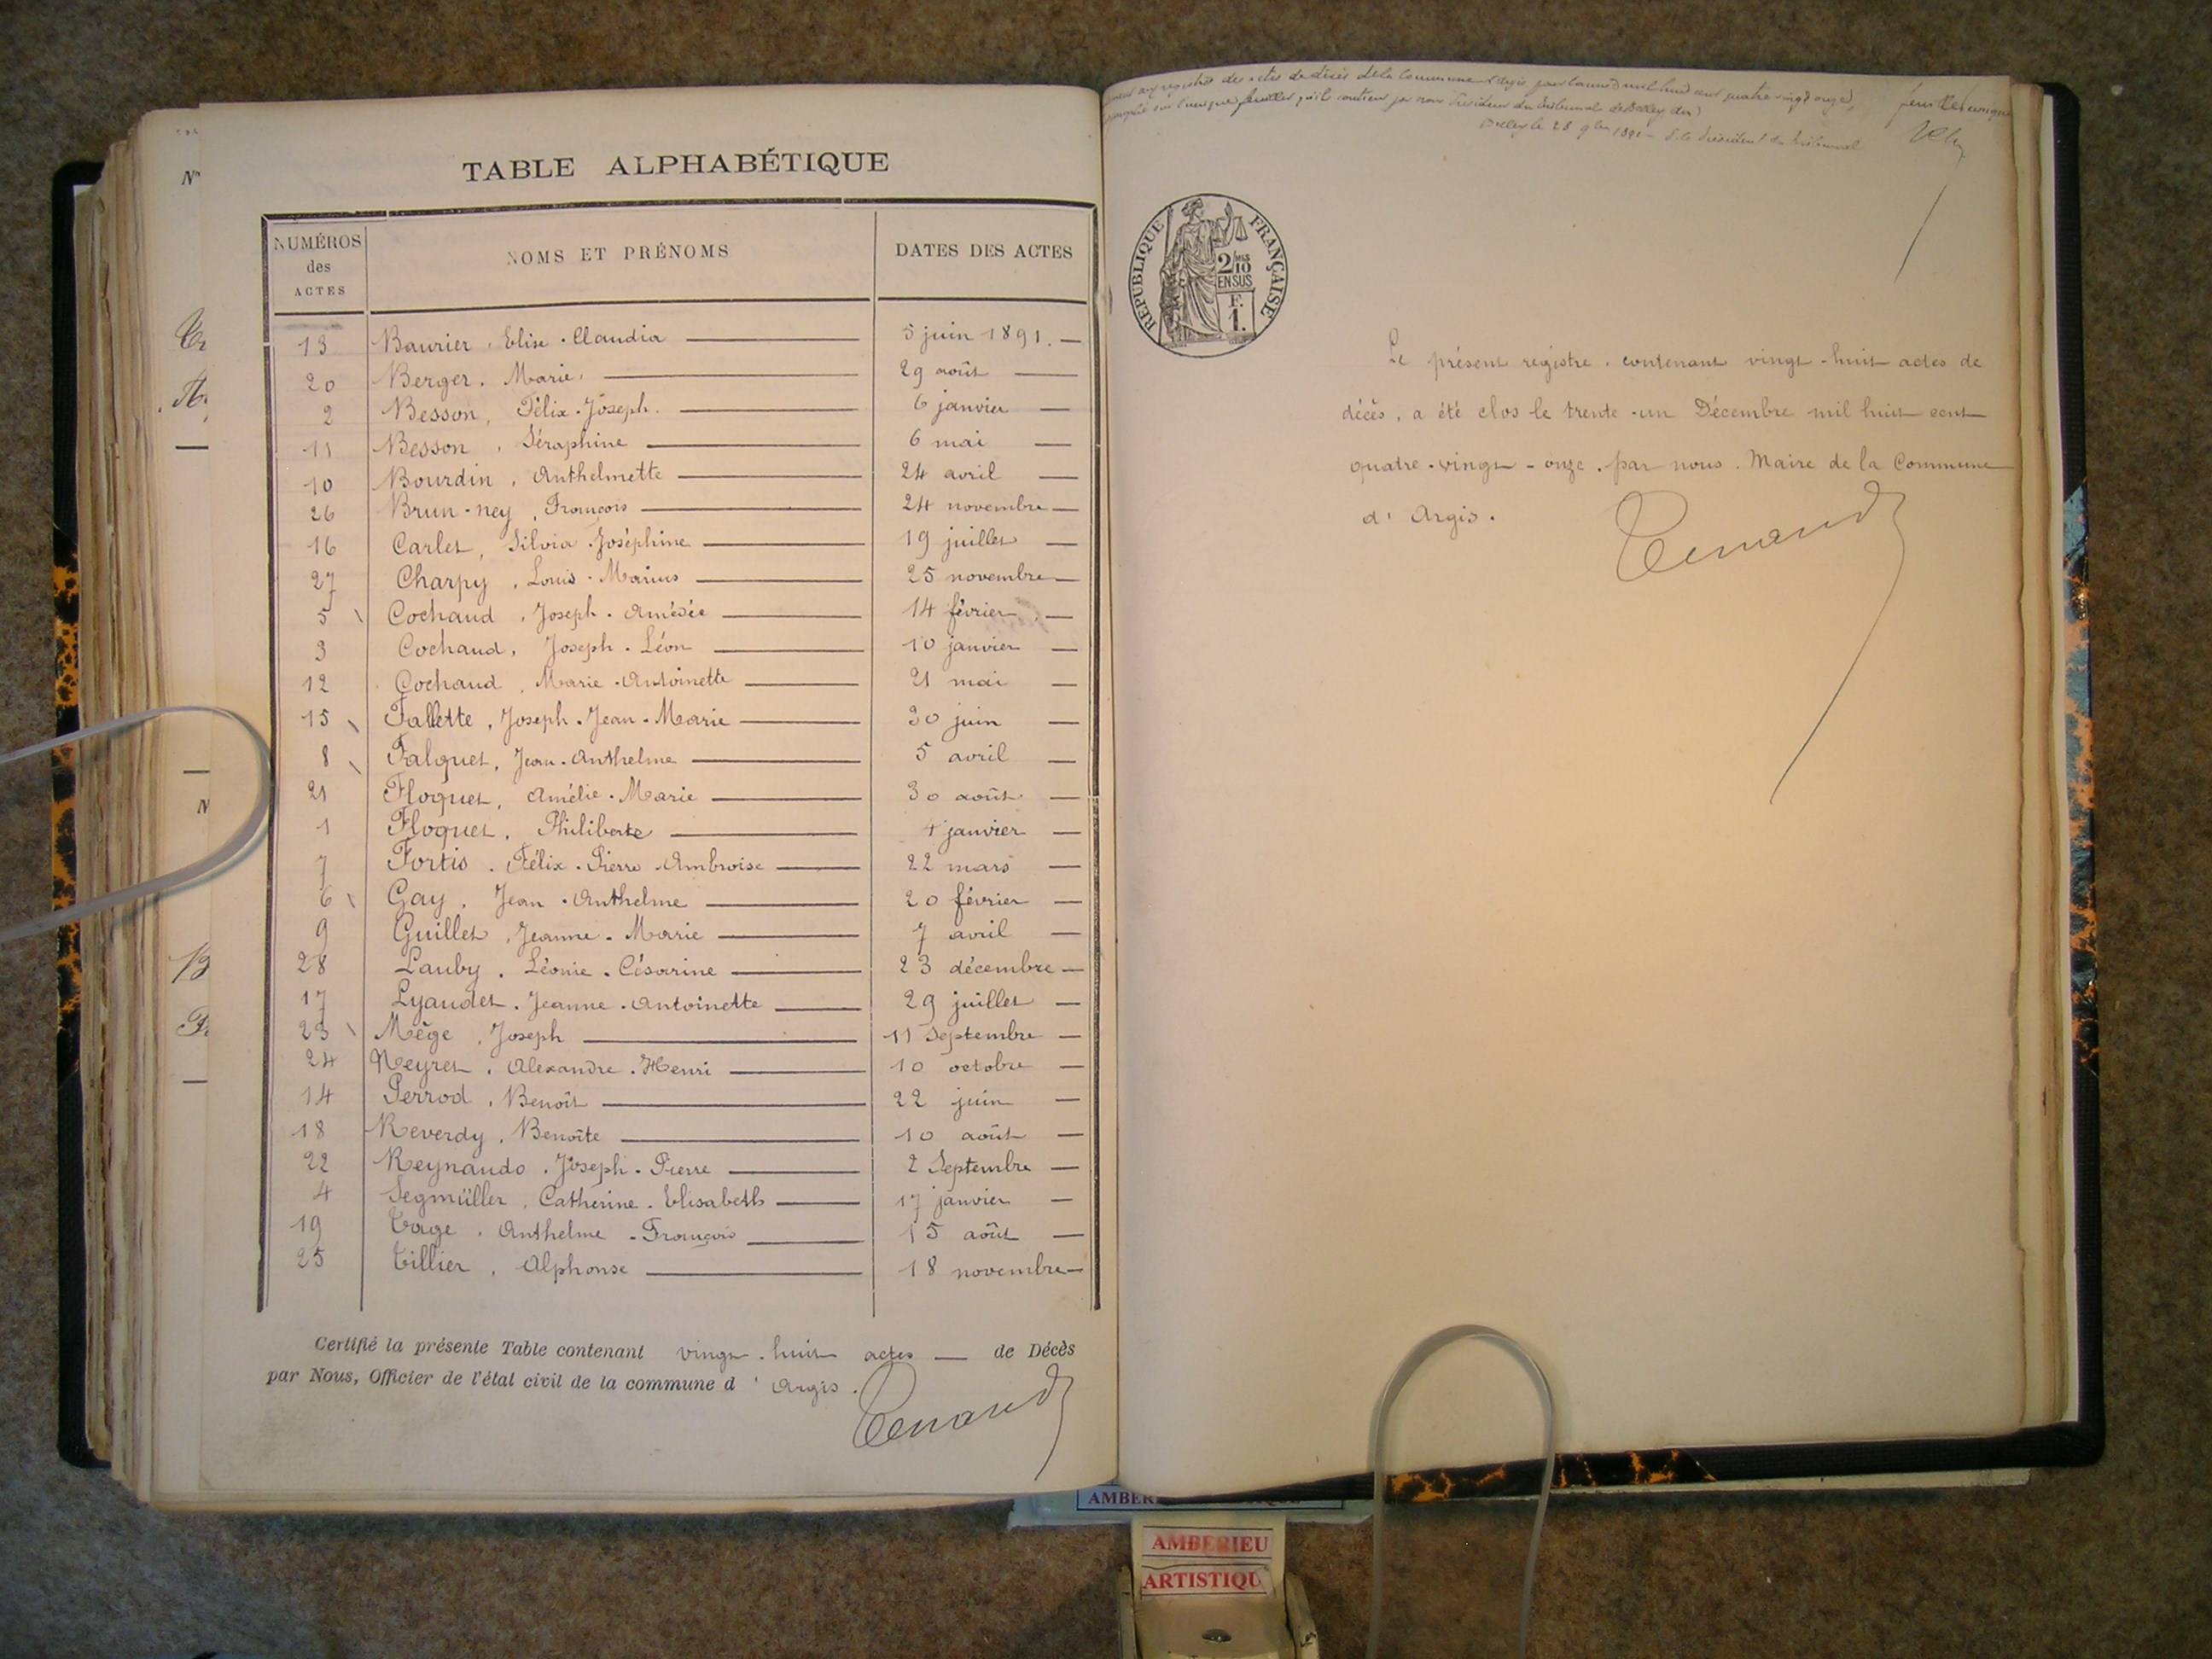 TABLE ALPHABÉTIQUE
NUMÉROS des ACTES NOMS ET PRÉNOMS DATES DES ACTES
13 Baurier, Elise-Claudia 5 juin 1891.
20 Berger, Marie, 29 août
2 Besson, Félix-Joseph. 6 janvier
11 Besson, Séraphine 6 mai
10 Bourdin, Anthelmette 24 avril
26 Brun-ney, François 24 novembre
16 Carlet, Silvia-Joséphine 19 juillet
27 Charpy, Louis-Marius 25 novembre
5 Cochaud, Joseph-Amédée 14 février
3 Cochaud, Joseph-Léon 10 janvier
12 Cochaud, Marie-Antoinette 21 mai
15 Fallette, Joseph-Jean-Marie 30 juin
8 Falquet, Jean-Anthelme 5 avril
21 Floquet, Amélie-Marie 30 août
1 Floquet, Philiberte 4 janvier
7 Fortis, Félix-Pierre-Ambroise 22 mars
6 Gay, Jean-Anthelme 20 février
9 Guillet, Jeanne-Marie 7 avril
28 Lauby, Léonie-Césarine 23 décembre
17 Lyaudet, Jeanne-Antoinette 29 juillet
23 Mège, Joseph 11 Septembre
24 Neyret, Alexandre-Henri 10 octobre
14 Perrod, Benoît 22 juin
18 Reverdy, Benoîte 10 août
22 Reynaudo, Joseph-Pierre 2 Septembre
4 Segmüller, Catherine-Elisabeth 17 janvier
19 Tage, Anthelme-François 15 août
25 Tillier, Alphonse 18 novembre
Certifié la présente Table contenant vingt-huit actes de Décès
par Nous, Officier de l'état civil de la commune d'Argis.
registre des actes de décès de la Commune d'Argis pour l'année mil huit cent quatre-vingt onze,
feuillet unique
Belley le 28 9bre 1890
RÉPUBLIQUE FRANÇAISE
2/10 EN SUS
F. 1.
Le présent registre, contenant vingt-huit actes de
décès, a été clos le trente-un Décembre mil huit cent
quatre-vingt-onze, par nous, Maire de la Commune
d'Argis.
AMBERIEU
ARTISTIQU